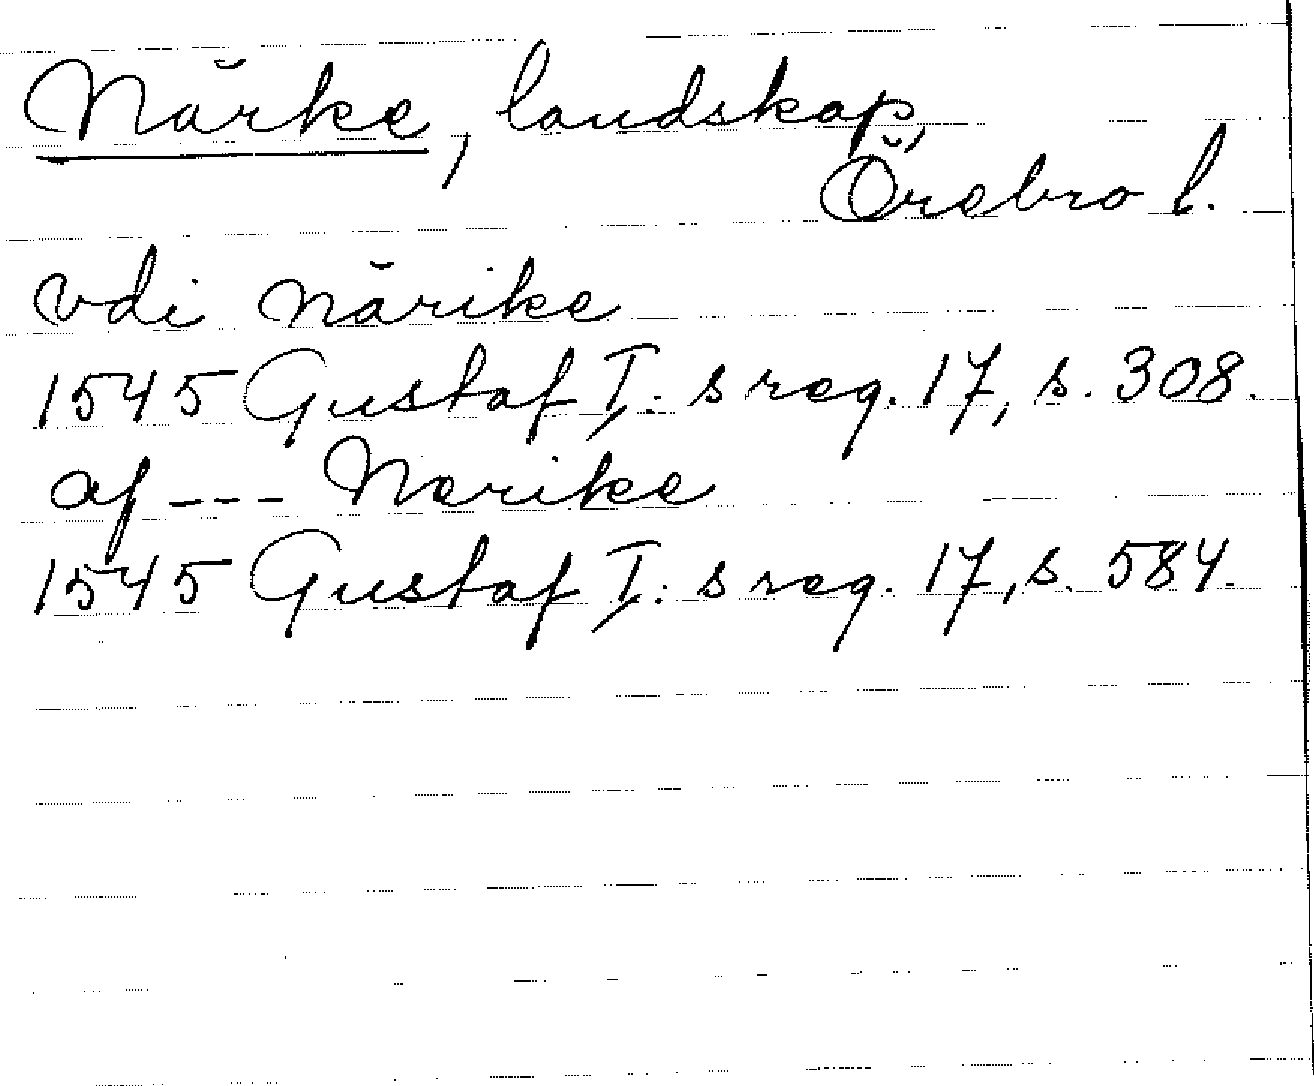 Närke, landskap,
Örebro l.
vdi närike
1545 Gustaf I: s reg. 17, s. 308.
af --- Nerike
1545 Gustaf I: s reg. 17, s. 584.